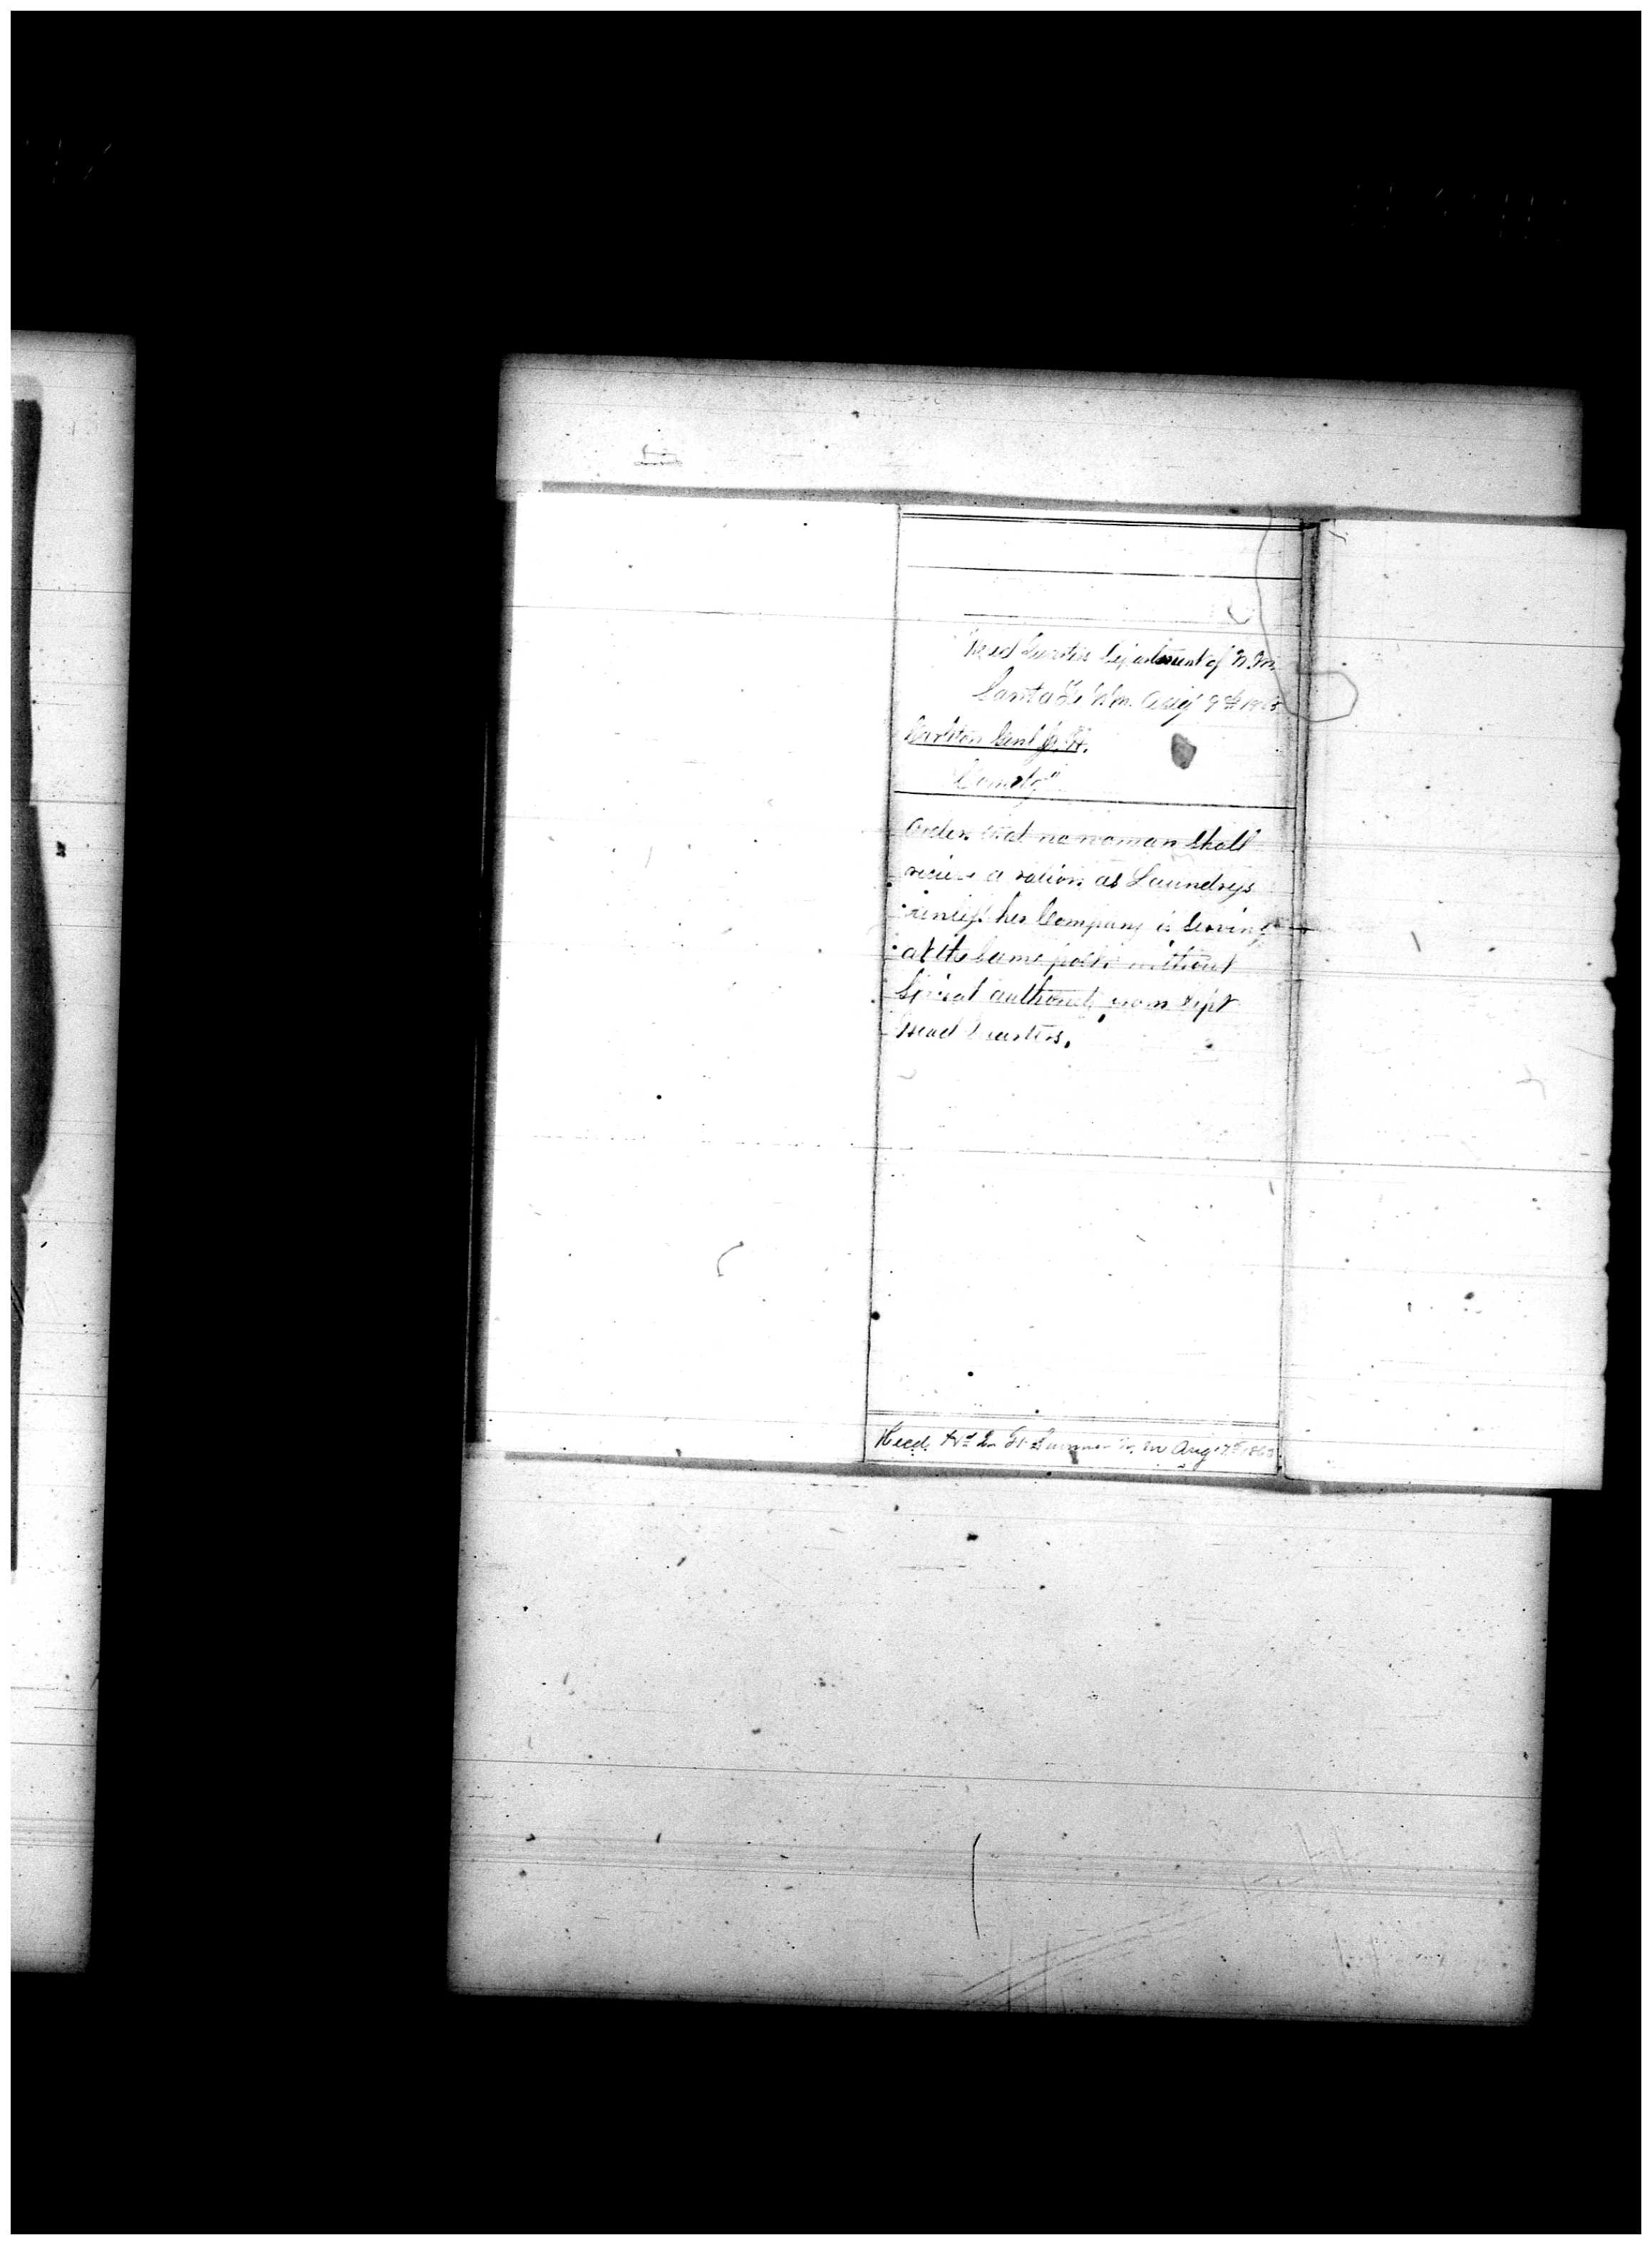 Head Quarters Department of N.M.
Santa Fe N.M. Aug 9th
Carleton Genl J. H.
Comdg"
Orders that no woman shall
receive a ration as Laundress
unless her Company is serving
at the same post, without
Special authority from Dept
Head Quarters.
Recd Hd Qr Ft Sumner N. M Aug 1865